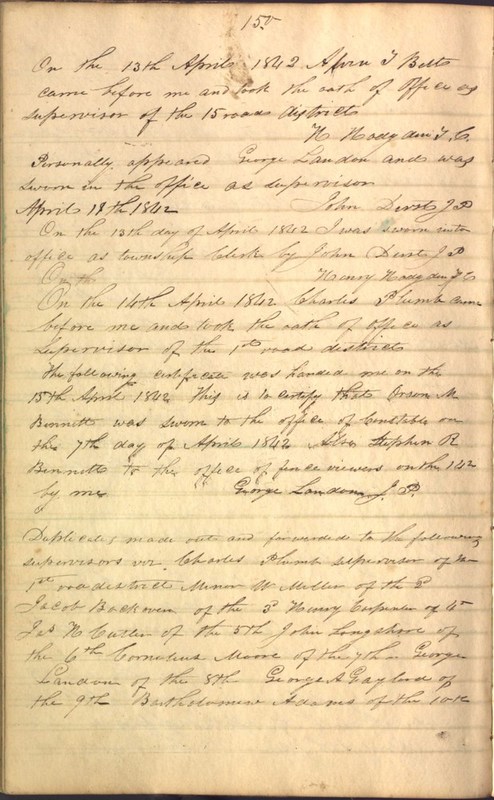 150
On the 13th April 1842 Alvin T Betts
came before me and took the oath of Office as
supervisor of the 15 road district
H Hodgden T. C.
Personally appeared George Landon and was
sworn in the office as supervisor
April 18th 1842 John Durst J P
On the 13th day of April 1842 I was sworn into
office as township Clerk by John Durst J P
On th Henry Hodgden T C
On the 14th April 1842 Charles Plumb came
before me and took the oath of office as
Supervisor of the 1st road district
The following certificate was handed me on the
15th April 1842 This is to certify that Orson M
Bennett was sworn to the office of Constable on
the 7th day of April 1842 Also Stephen R
Bennett to the office of fence viewers on the 142
by me George Landon J. P.
Duplicates made out and forwarded to the following
supervisors viz. Charles Plumb supervisor of the
1st road district Minor W Miller of the 2
Jacob Backoven of the 3d Henry Carpenter of 4th
Jas H Cutler of the 5th John Longshore of
the 6th Cornelius Moore of the 7th George
Landon of the 8th George A Gaylord of
the 9th Bartholomew Adams of the 10th